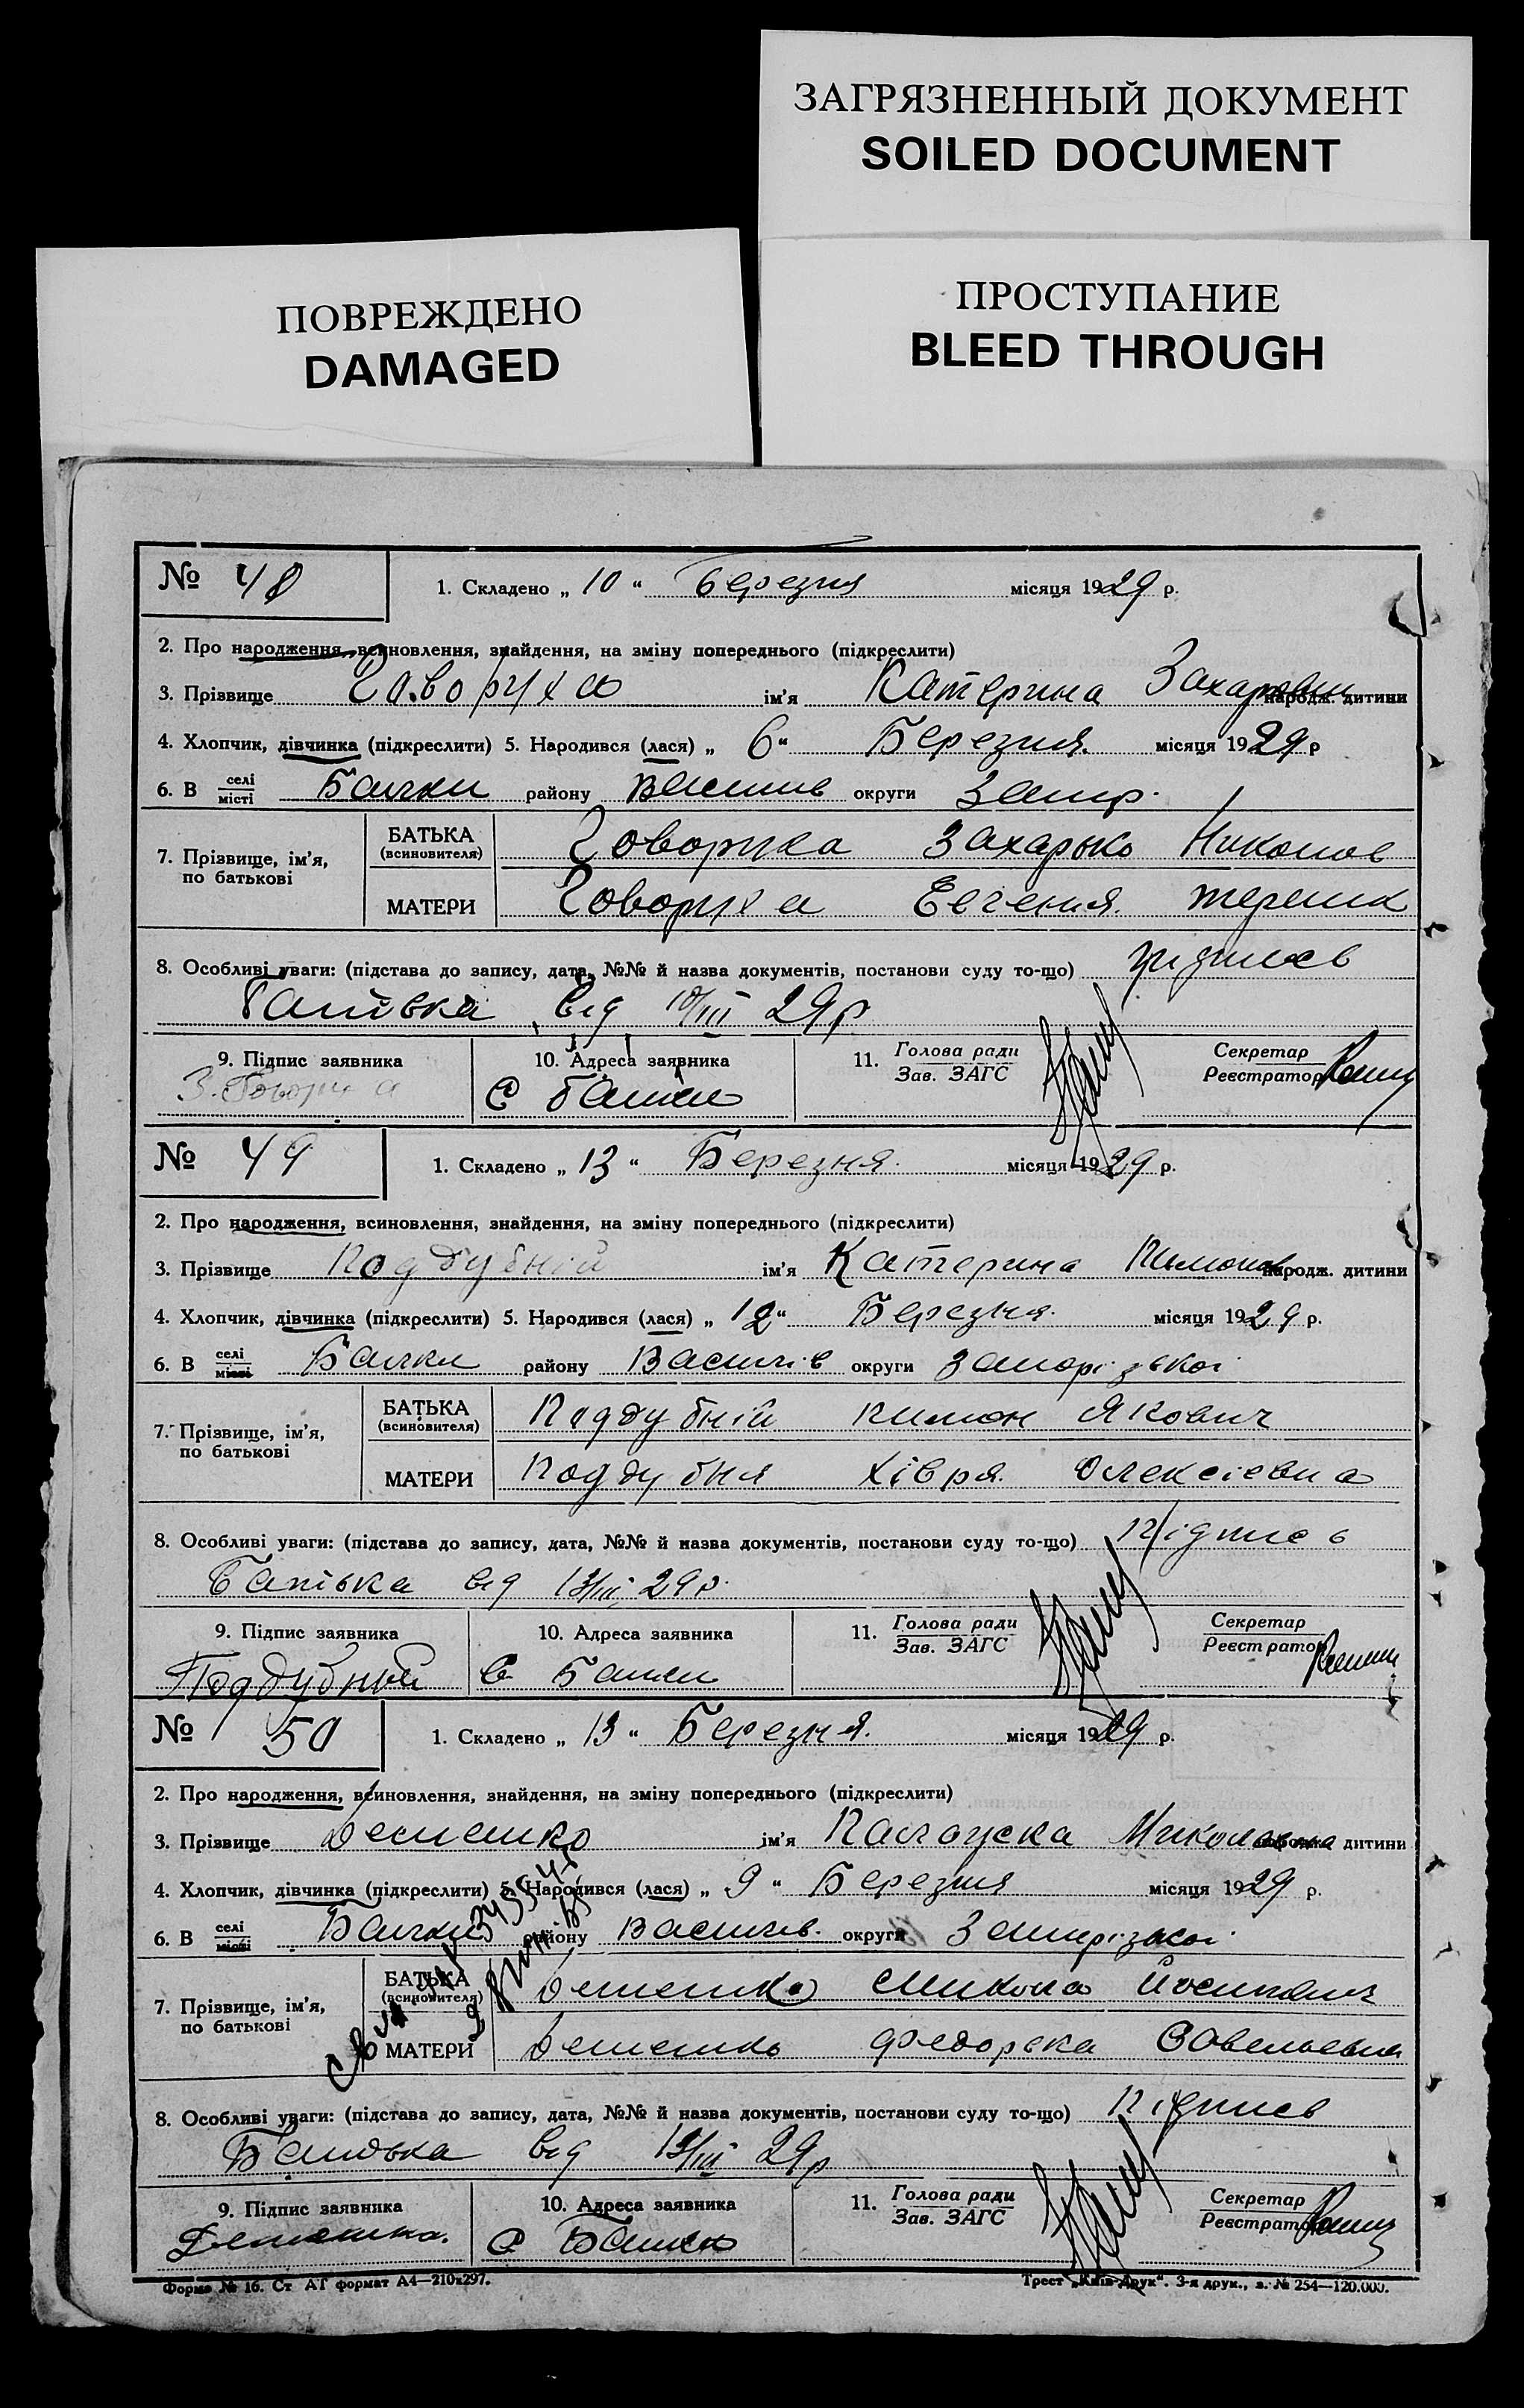 ЗАГРЯЗНЕННЫЙ ДОКУМЕНТ
SOILED DOCUMENT
ПОВРЕЖДЕНО
DAMAGED
ПРОСТУПАНИЕ
BLEED THROUGH
№ 48
1. Складено „ 10 “ Березня місяця 1929 р.
2. Про народження, всиновлення, знайдення, на зміну попереднього (підкреслити)
3. Прізвище Говоруха ім'я Катерина народж. дитини
4. Хлопчик, дівчинка (підкреслити) 5. Народився (лася) „ 6 “ Березня. місяця 1929 р
6. В селі місті Балки району Василів округи Запор.
7. Прізвище, ім'я, по батькові
БАТЬКА (всиновителя) Говоруха Захарько Никонов
МАТЕРИ Говоруха Евгения.
8. Особливі уваги: (підстава до запису, дата, №№ й назва документів, постанови суду то-що) підпись
Батівка від 10/III 29р
9. Підпис заявника
10. Адреса заявника
11. Голова ради Зав. ЗАГС
Секретар Реєстратор
З. Говоруха
с Балки
№ 49
1. Складено „ 13 “ Березня. місяця 1929 р.
2. Про народження, всиновлення, знайдення, на зміну попереднього (підкреслити)
3. Прізвище Поддубній ім'я Катерина народж. дитини
4. Хлопчик, дівчинка (підкреслити) 5. Народився (лася) „ 12 “ Березня. місяця 1929 р.
6. В селі місті Балки району Василів округи Запорізької
7. Прізвище, ім'я, по батькові
БАТЬКА (всиновителя) Поддубній Пимон Якович
МАТЕРИ Поддубня Хівря. Олексіевна
8. Особливі уваги: (підстава до запису, дата, №№ й назва документів, постанови суду то-що) Підпись
Батівка від 13/III 29р.
9. Підпис заявника
10. Адреса заявника
11. Голова ради Зав. ЗАГС
Секретар Реєстратор
Поддубний
с Балки
№ 50
1. Складено „ 13 “ Березня. місяця 1929 р.
2. Про народження, всиновлення, знайдення, на зміну попереднього (підкреслити)
3. Прізвище Демешко ім'я Палажска Миколаевна дитини
4. Хлопчик, дівчинка (підкреслити) 5. Народився (лася) „ 9 “ Березня місяця 1929 р.
6. В селі місті Балки району Василів. округи Запорізької
7. Прізвище, ім'я, по батькові
БАТЬКА (всиновителя) Демешко Микола Йосипович
МАТЕРИ Демешко Федорска Савельевна
8. Особливі уваги: (підстава до запису, дата, №№ й назва документів, постанови суду то-що) Підпись
Батька від 13/III 29р
9. Підпис заявника
10. Адреса заявника
11. Голова ради Зав. ЗАГС
Секретар Реєстратор
Демешко.
с Балки
Форма № 16. Ст. АТ формат А4—210x297.
Трест „Київ-Друк“. 3-я друк., з. № 254—120.000.